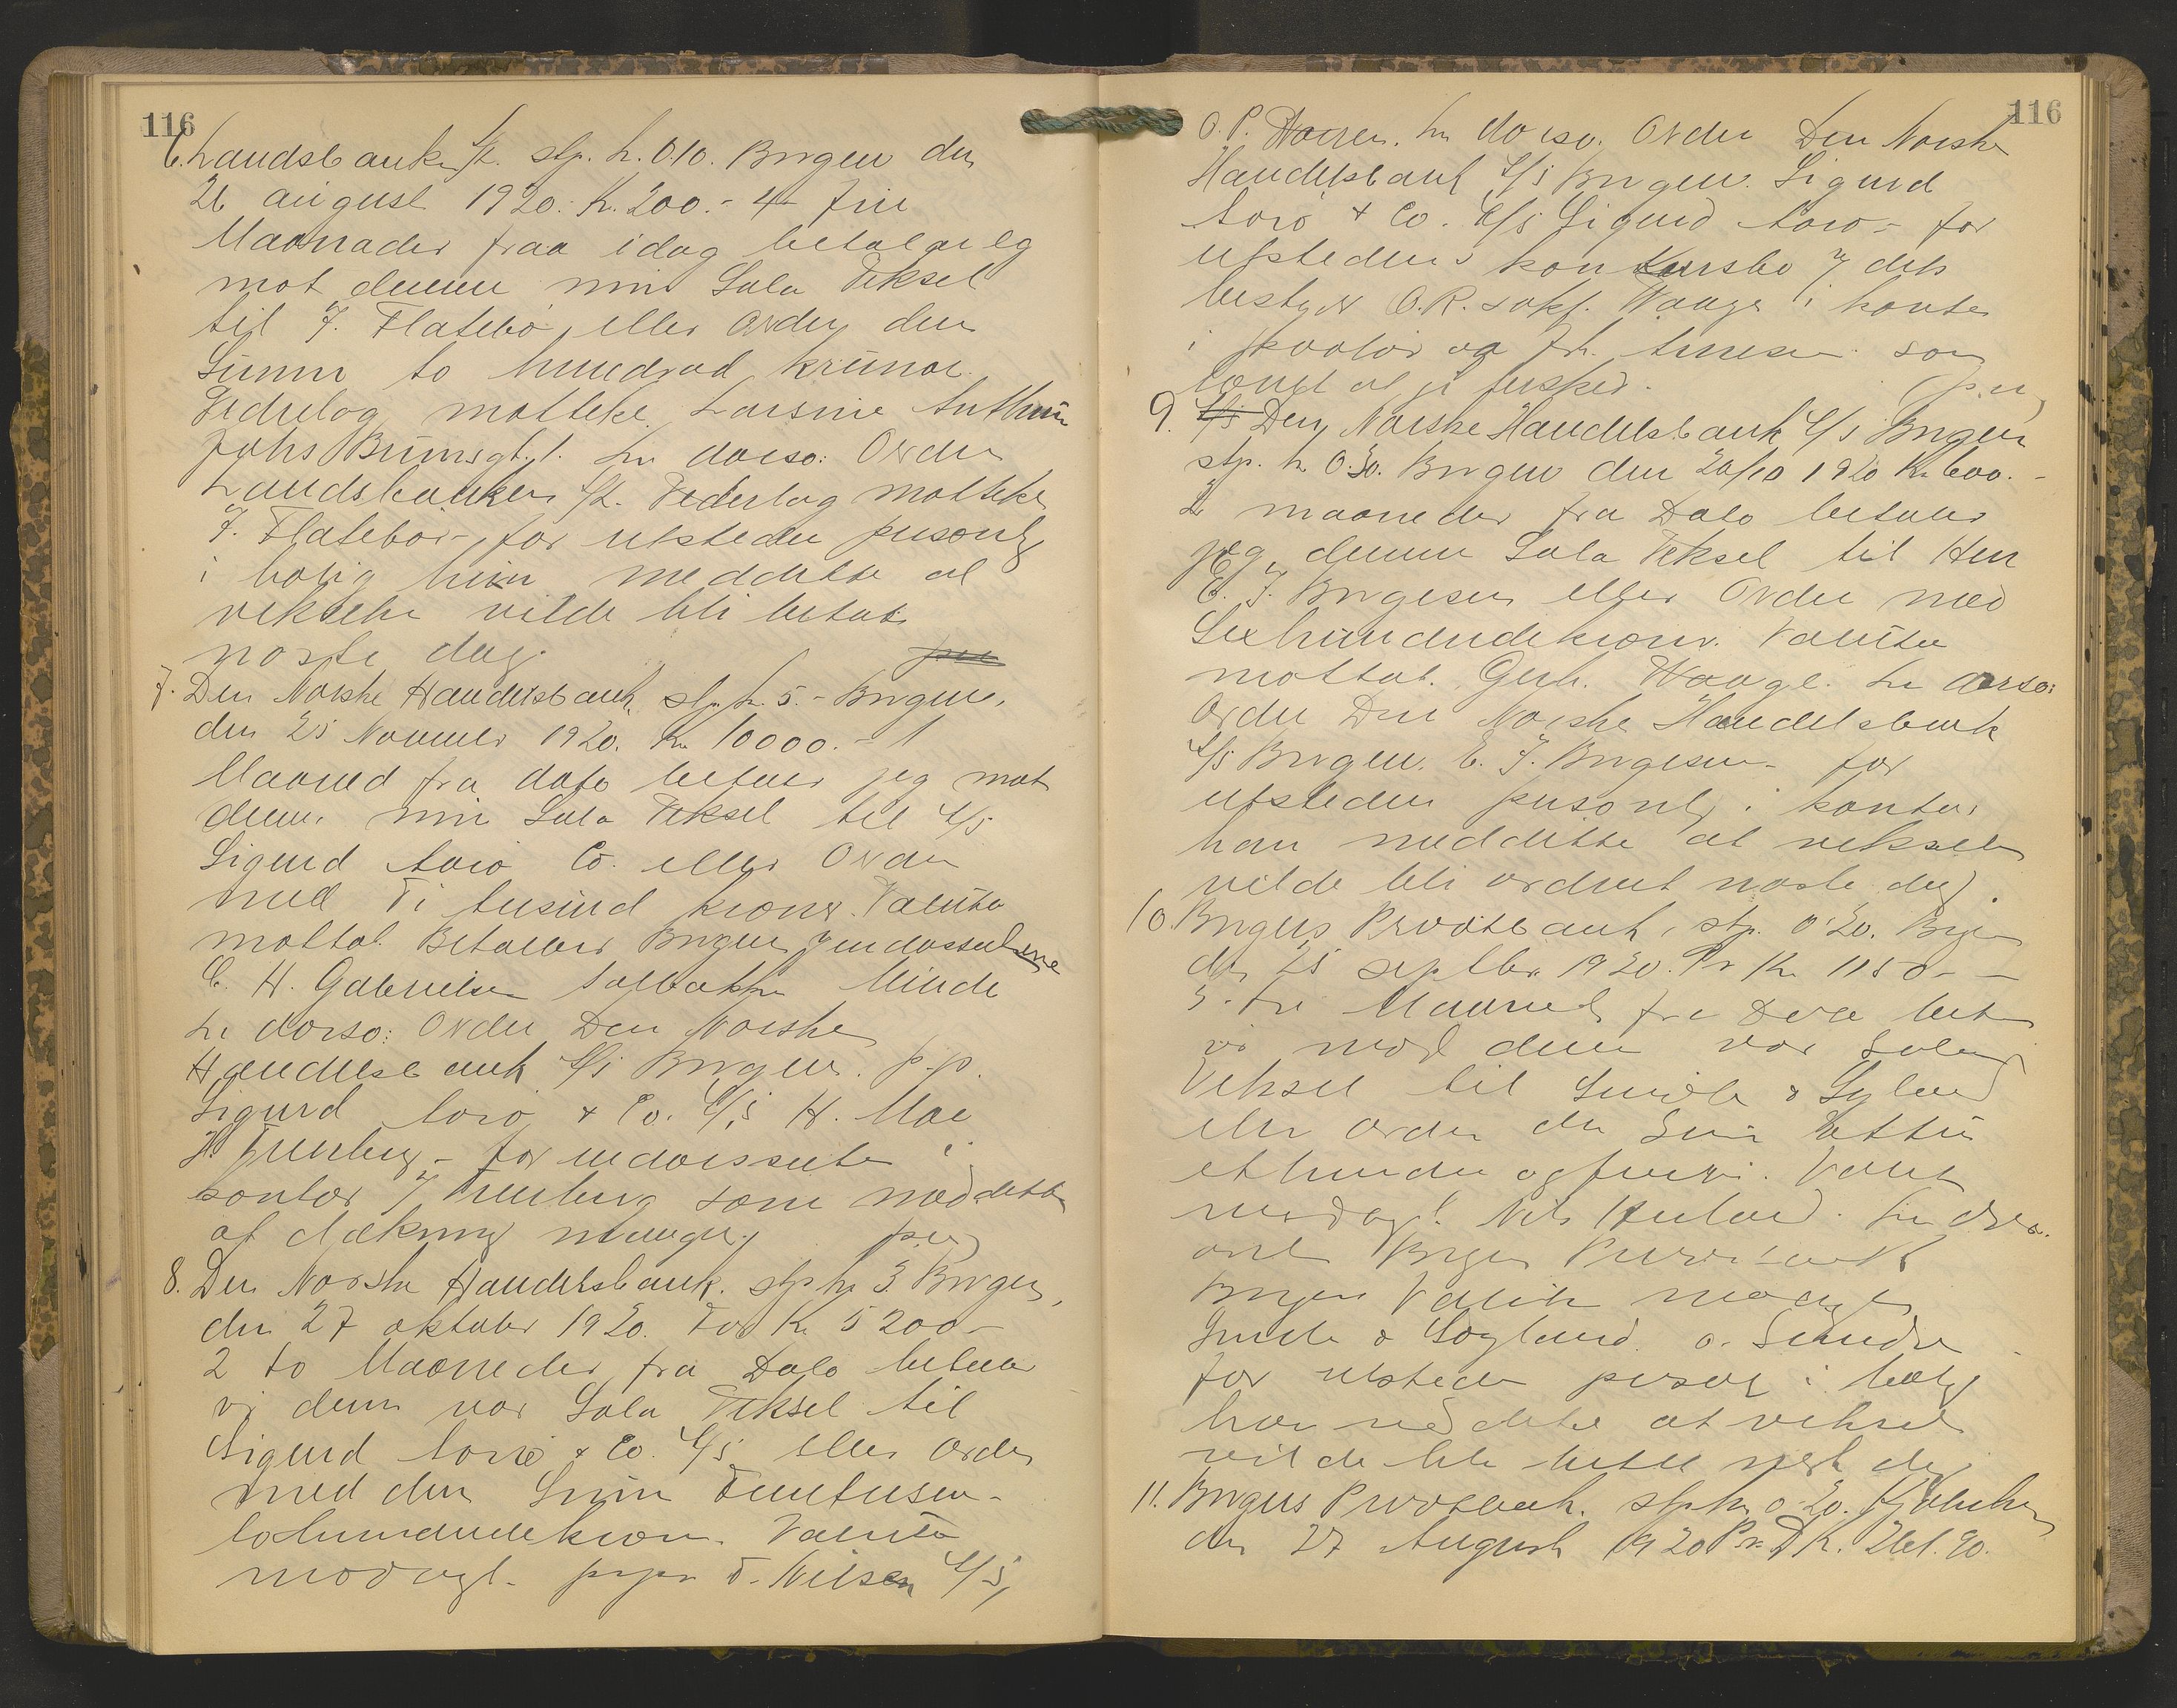 116
6. Landsbanken A/L. stp. kr. 0.10. Bergen den
26 august 1920. Kr. 200.- 4 fire
Maanader fraa idag betalar eg
mot denne min Sola Veksel
til J. Flatebø eller Order den
Summ to hundrad krunor.
Vederlag motteke. Larsine
Johs Brunsgt. 1. In dorso: Order
Landsbanken A/L. Vederlag motteke
J. Flatebø - for utsteder personlig
i bolig hun meddelte at
vekselen vilde bli betalt
næste dag.
7. Den Norske Handelsbank, stp. kr. 5.- Bergen,
den 25 November 1920. Kr. 10000.- 1
Maaned fra dato betaler jeg mot
denne min Sola Veksel til A/S
Sigurd Co. eller Order
med Ti tusind kroner. Valuta
mottat. Betales Bergen Indossentene
C. H. Gabrielsen Solbakken Minde
In dorso: Order Den Norske
Handelsbank A/S Bergen. p.p.
Sigurd & Co. A/S H. Moe
- for indossenten i
kontor som meddelte
at dækning mangler.
8. Den Norske Handelsbank. stp. kr. 3. Bergen,
den 27 oktober 1920. For Kr. 5200-
2 to Maaneder fra Dato betaler
vi denne vor Sola Veksel til
Sigurd & Co. A/S eller Order
med den Sum Femtusen-
tohundredekroner. Valuta
modtagt. pr. pr. T. Nilsen A/S,
116
O. P. In dorso. Order Den Norske
Handelsbank A/S Bergen. Sigurd
& Co. A/S Sigurd - for
utstederens konkursbo v/ dets
bestyrer O.R. sakf. Waage i kontor
i kontor og som
9. Den Norske Handelsbank A/S Bergen
stp. kr. 0.30. Bergen den 20/10 1920 Kr. 600.-
2 maaneder fra Dato betaler
jeg denne Sola Veksel til Herr
E. J. Birgesen eller Order med
Sexhundredekroner. Valuta
mottat. Gerh. Waage. In dorso:
Order Den Norske Handelsbank
A/S Bergen. E. J. Birgesen - for
utsteder personlig i kontor,
han meddelte at vekselen
vilde bli ordnet næste dag.
10. Bergens Privatbank, stp. 0.30. Bergen
den 25 septbr. 1920. Pr Kr. 1150.-
3- tre Maaned fra Dato betaler
vi mod denne vor Sola
Veksel til &
eller order den Sum
et hundre og femti. Valuta
modtagt. Nils In dorso.
order Bergens Privatbank
Bergen Valuta modtagt
&
for utsteder personlig i bolig
han meddelte at veksel
vilde bli betalt næste dag
11. Bergens Privatbank. stp. kr. 0.20.
den 27 August 1920 Pr. Kr. 261.90.